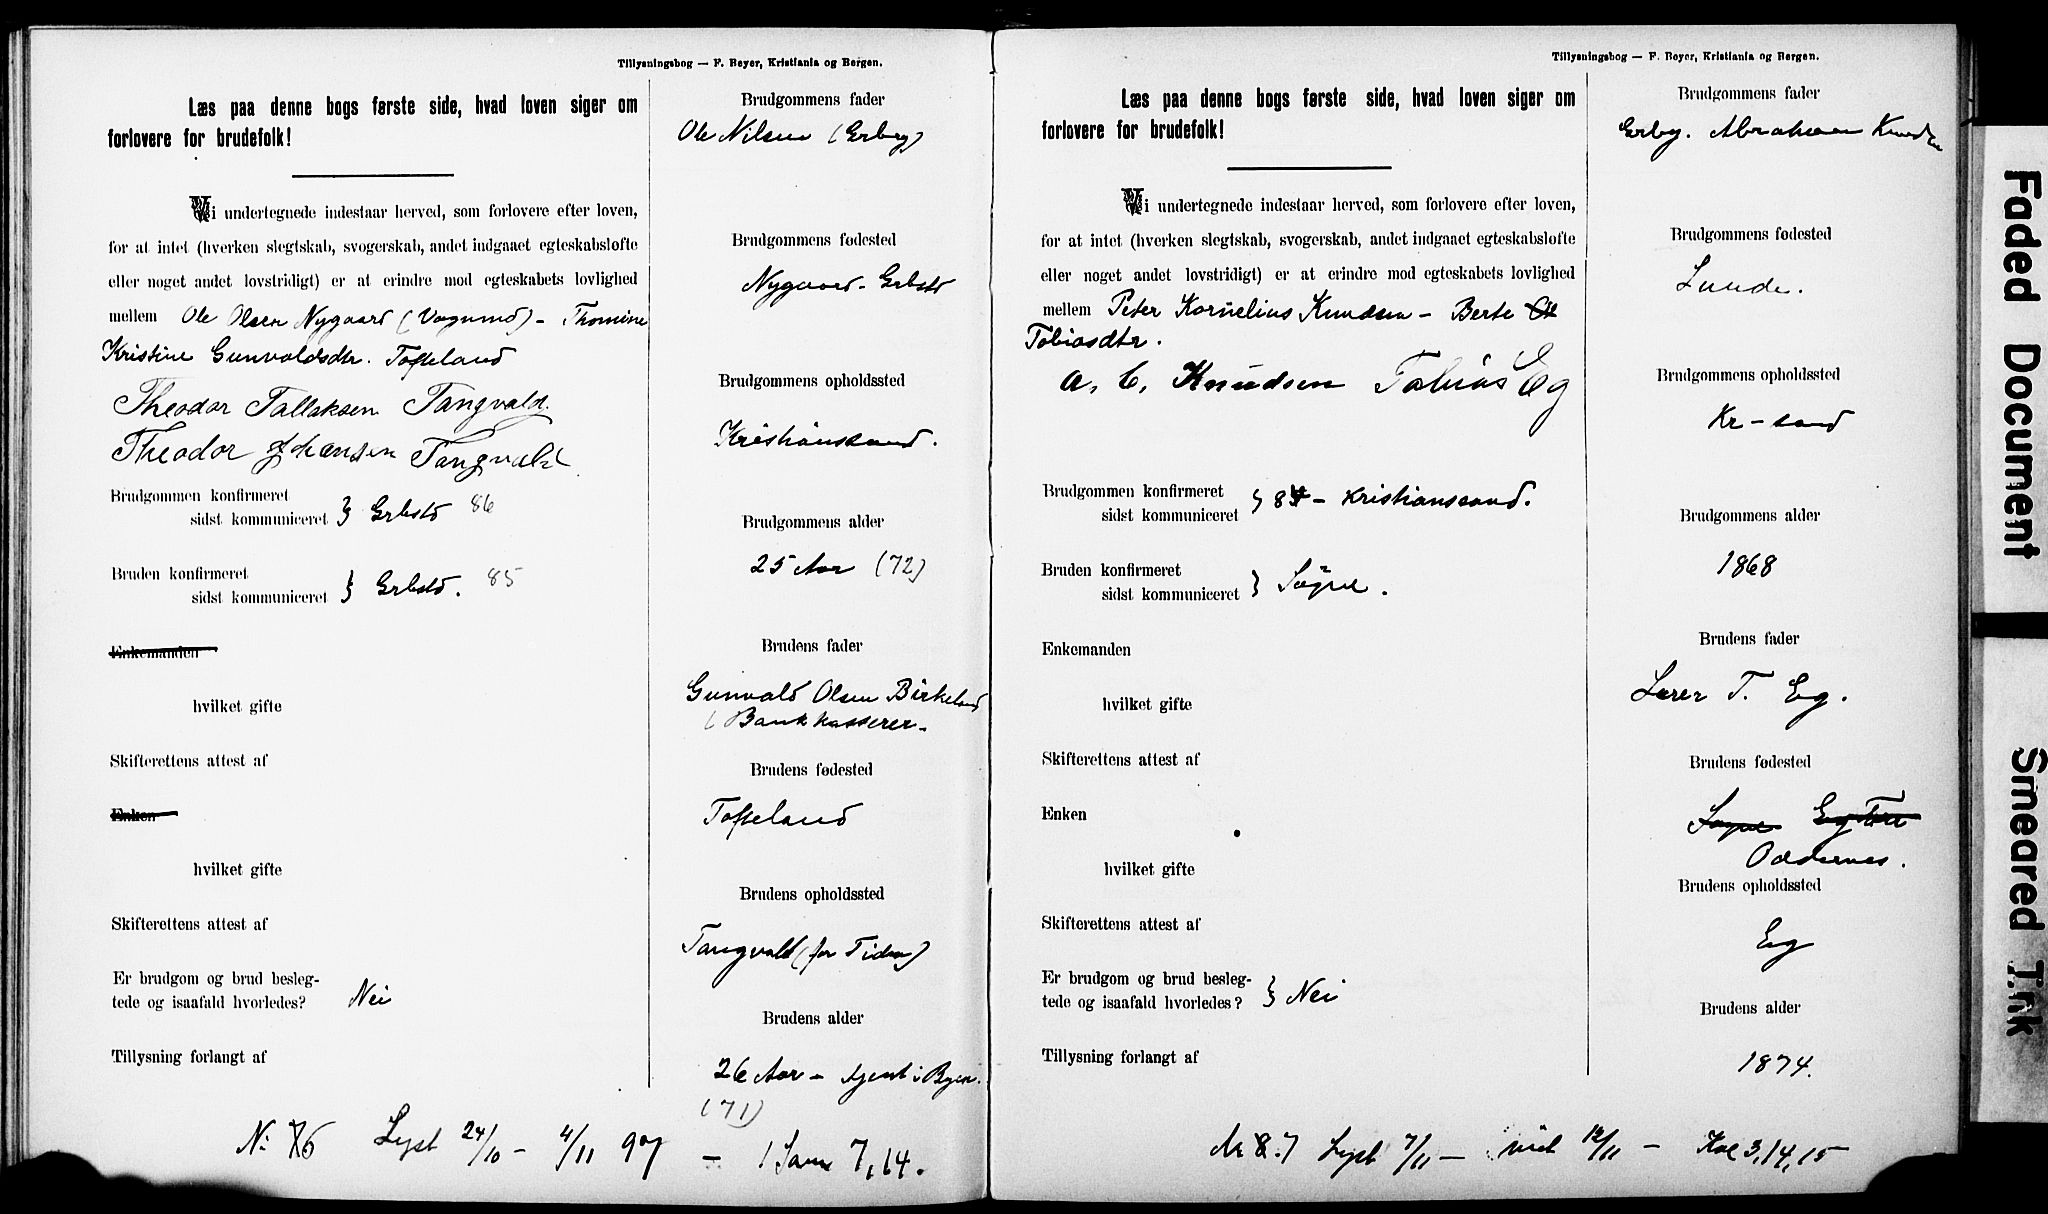 Tillysningsbog — F. Beyer, Kristiania og Bergen.
Læs paa denne bogs første side, hvad loven siger om
forlovere for brudefolk!
Vi undertegnede indestaar herved, som forlovere efter loven,
for at intet (hverken slegtskab, svogerskab, andet indgaaet egteskabsløfte
eller noget andet lovstridigt) er at erindre mod egteskabets lovlighed
mellem Ole Olsen Nygaard (Vognmd) - Thomine
Kristine Gunvaldsdtr. Tofteland
Theodor Tallaksen Tangvald.
Theodor Johansen Tangvald
Brudgommen konfirmeret
sidst kommuniceret } Grbstd 86
Bruden konfirmeret
sidst kommuniceret } Grbstd. 85
Enkemanden
hvilket gifte
Skifterettens attest af
Enken
hvilket gifte
Skifterettens attest af
Er brudgom og brud besleg-
tede og isaafald hvorledes? Nei
Tillysning forlangt af
Brudgommens fader
Ole Nilsen (Grbrg)
Brudgommens fødested
Nygaard - Grbstd
Brudgommens opholdssted
Kristianssand.
Brudgommens alder
25 Aar (72)
Brudens fader
Gunvald Olsen Birkeland
(Bankkasserer -
Brudens fødested
Tofteland
Brudens opholdssted
Tangvald (for Tiden)
Brudens alder
26 Aar - Agent i Byen.
(71)
N: 76 Lyst 24/10 - 4/11 97 - 1 Sam 7,14.
Tillysningsbog — F. Beyer, Kristiania og Bergen.
Læs paa denne bogs første side, hvad loven siger om
forlovere for brudefolk!
Vi undertegnede indestaar herved, som forlovere efter loven,
for at intet (hverken slegtskab, svogerskab, andet indgaaet egteskabsløfte
eller noget andet lovstridigt) er at erindre mod egteskabets lovlighed
mellem Peter Kornelius Knudsen - Berte
Tobiasdtr.
A. C. Knudsen Tobias Eg
Brudgommen konfirmeret
sidst kommuniceret } 84 - Kristianssand.
Bruden konfirmeret
sidst kommuniceret } Søgne.
Enkemanden
hvilket gifte
Skifterettens attest af
Enken
hvilket gifte
Skifterettens attest af
Er brudgom og brud besleg-
tede og isaafald hvorledes? } Nei
Tillysning forlangt af
Brudgommens fader
Grbrg. Abraham Knudsen
Brudgommens fødested
Lunde.
Brudgommens opholdssted
Kr-sand
Brudgommens alder
1868
Brudens fader
Lærer T. Eg.
Brudens fødested
Søgne
Oddernes.
Brudens opholdssted
Eg
Brudens alder
1874.
Nr 8.7 Lyst 7/11 - viet 12/11 - Kol 3,14,15
Faded Document
Smeared Ink